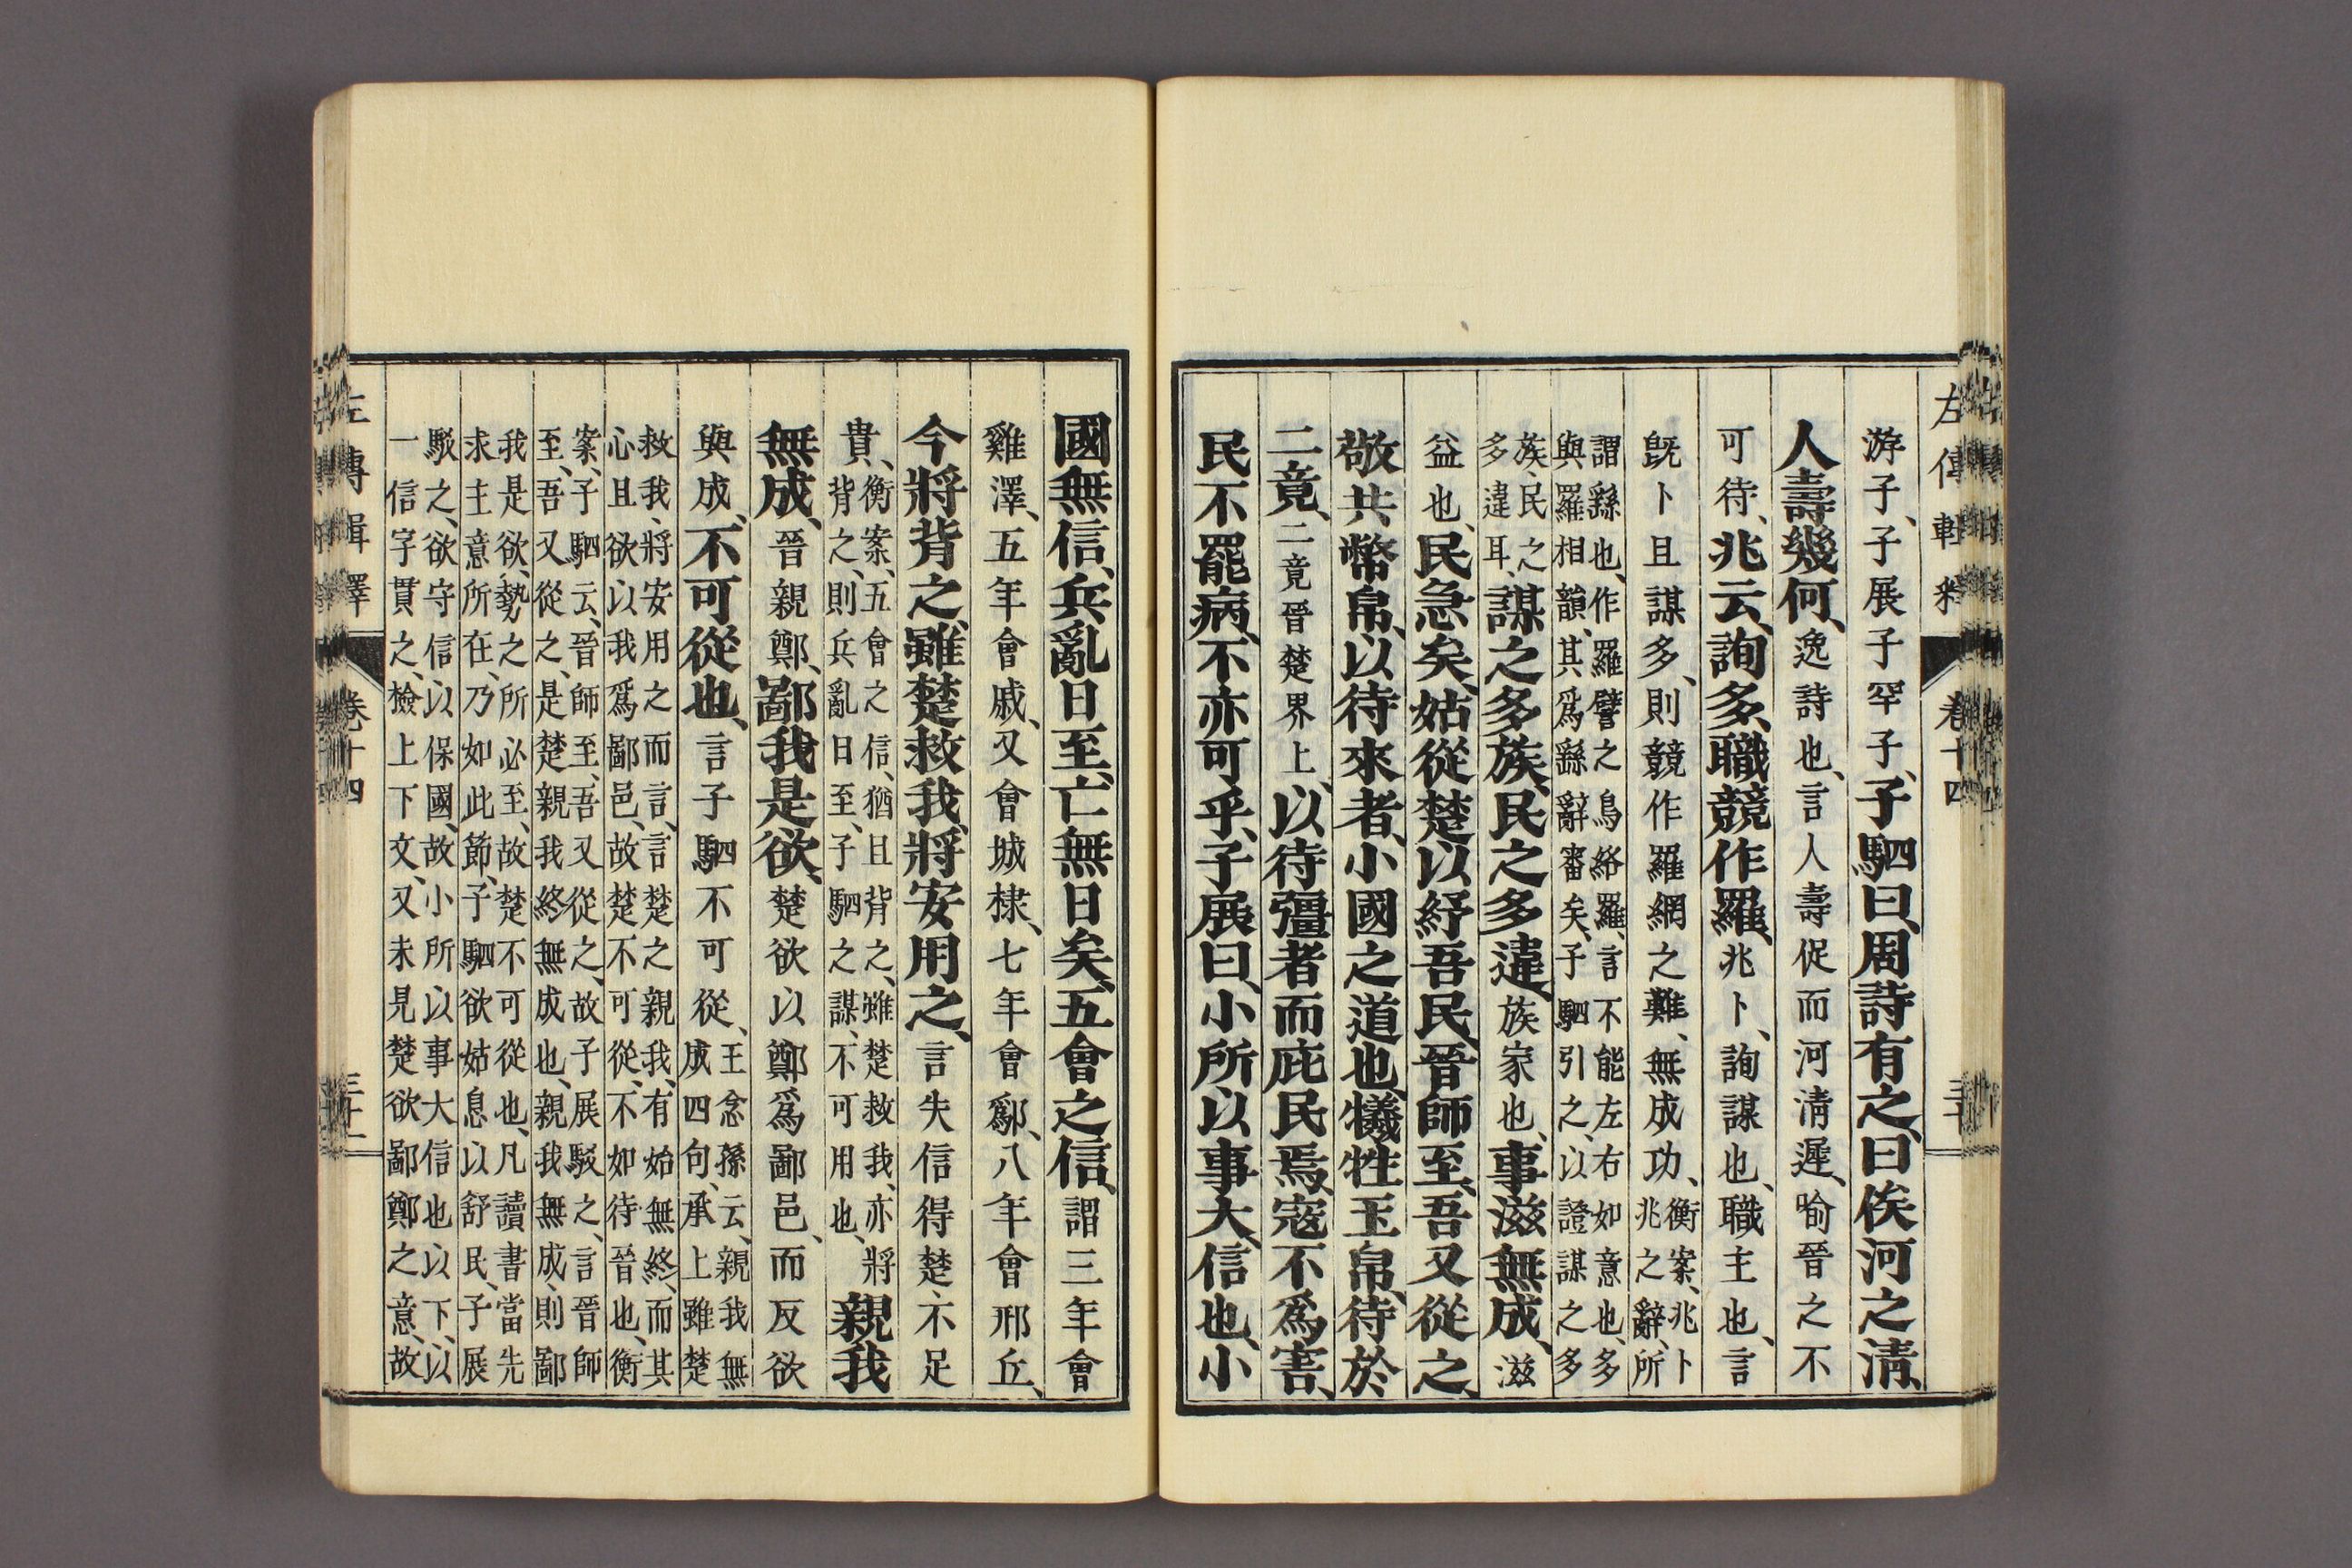 游子、子展子罕子、子駟曰、周詩有之、曰俟河之淸、
人壽幾何、逸詩也、言人壽促而河淸遲、喻晉之不
可待、兆云、詢多、職競作羅、兆卜、詢謀也、職主也、言
旣卜且謀多、則競作羅網之難、無成功、衡案、兆卜兆之辭、所
謂繇也、作羅譬之鳥絡羅、言不能左右如意也、多
與羅相韻、其爲繇辭審矣、子駟引之、以證謀之多
族、民之多違耳、謀之多族、民之多違、族家也、事滋無成、滋
益也、民急矣、姑從楚以紓吾民、晉師至、吾又從之、
敬共幣帛、以待來者、小國之道也、犧牲玉帛、待於
二竟、二竟晉楚界上、以待彊者而庇民焉、寇不爲害、
民不罷病、不亦可乎、子展曰、小所以事大、信也、小
左傳輯釋 卷十四
國無信、兵亂日至、亡無日矣、五會之信、謂三年會
雞澤、五年會戚、又會城棣、七年會鄬、八年會邢丘、
今將背之、雖楚救我、將安用之、言失信得楚、不足
貴、衡案、五會之信、猶且背之、雖楚救我、亦將背之、則兵亂日至、子駟之謀、不可用也、親我
無成、晉親鄭、鄙我是欲、楚欲以鄭爲鄙邑、而反欲
與成、不可從也、言子駟不可從、王念孫云、親我無成四句、承上雖楚
救我、將安用之而言、言楚之親我、有始無終、而其
心且欲以我爲鄙邑、故楚不可從、不如待晉也、衡
案、子駟云、晉師至、吾又從之、故子展駁之、言晉師
至、吾又從之、是楚親我終無成也、親我無成、則鄙
我是欲、勢之所必至、故楚不可從也、凡讀書當先
求主意所在、乃如此節、子駟欲姑息以舒民、子展
駁之、欲守信以保國、故小所以事大信也以下、以
一信字貫之、撿上下文、又未見楚欲鄙鄭之意、故
左傳輯釋 卷十四